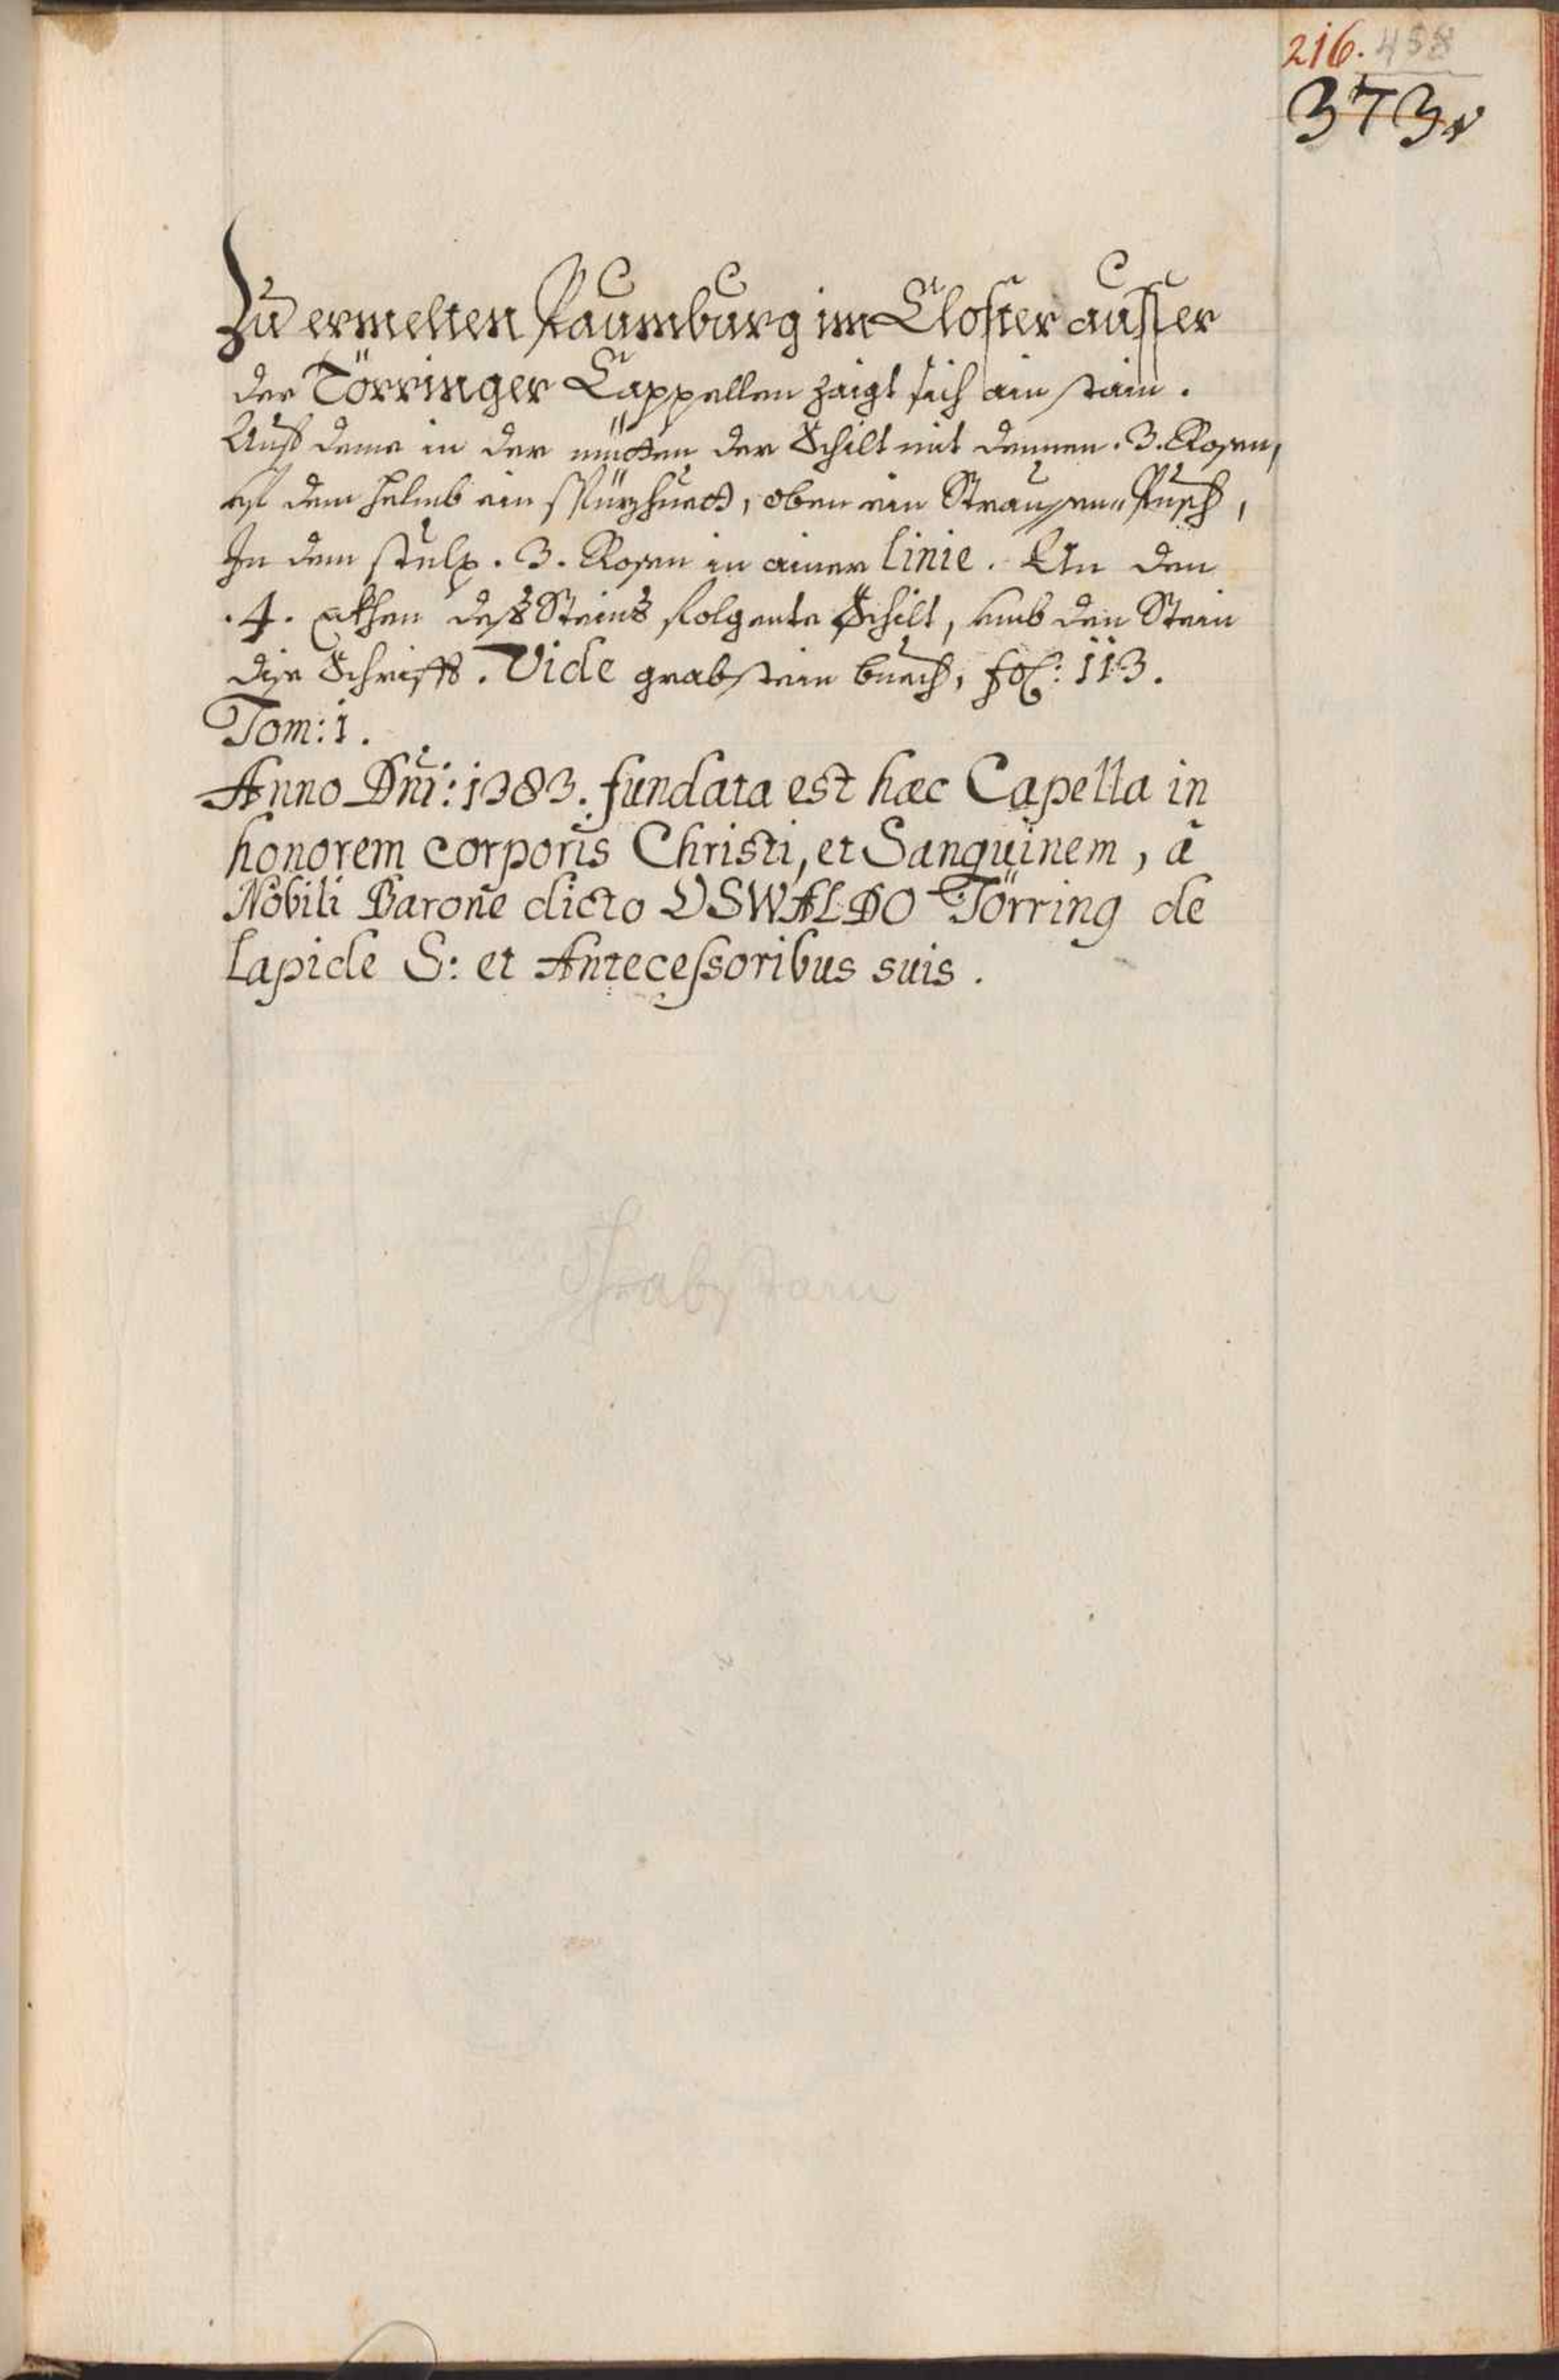 216. 458
373
Zu ermelten Paumburg im Closter ausser
der Törringer Cappellen zaigt sich ain stain.
Auß deme in der mitten der Schilt mit dennen .3. Rosen,
auf dem helmb ein Spizhuet, oben ein Straussen" Pusch,
In dem stulp .3. Rosen in ainer linie. An den
.4. ekhen deß Steins folgente Schilt, umb den Stein
dise Schrifft. Vide grabstein buech, fol: 113.
Tom: 1.
Anno Dni: 1383. fundata est hæc Capella in
honorem corporis Christi, et Sanguinem, a
Nobili Barone dicto OSWALDO Törring de
Lapide S: et Antecessoribus suis.
Grabstain